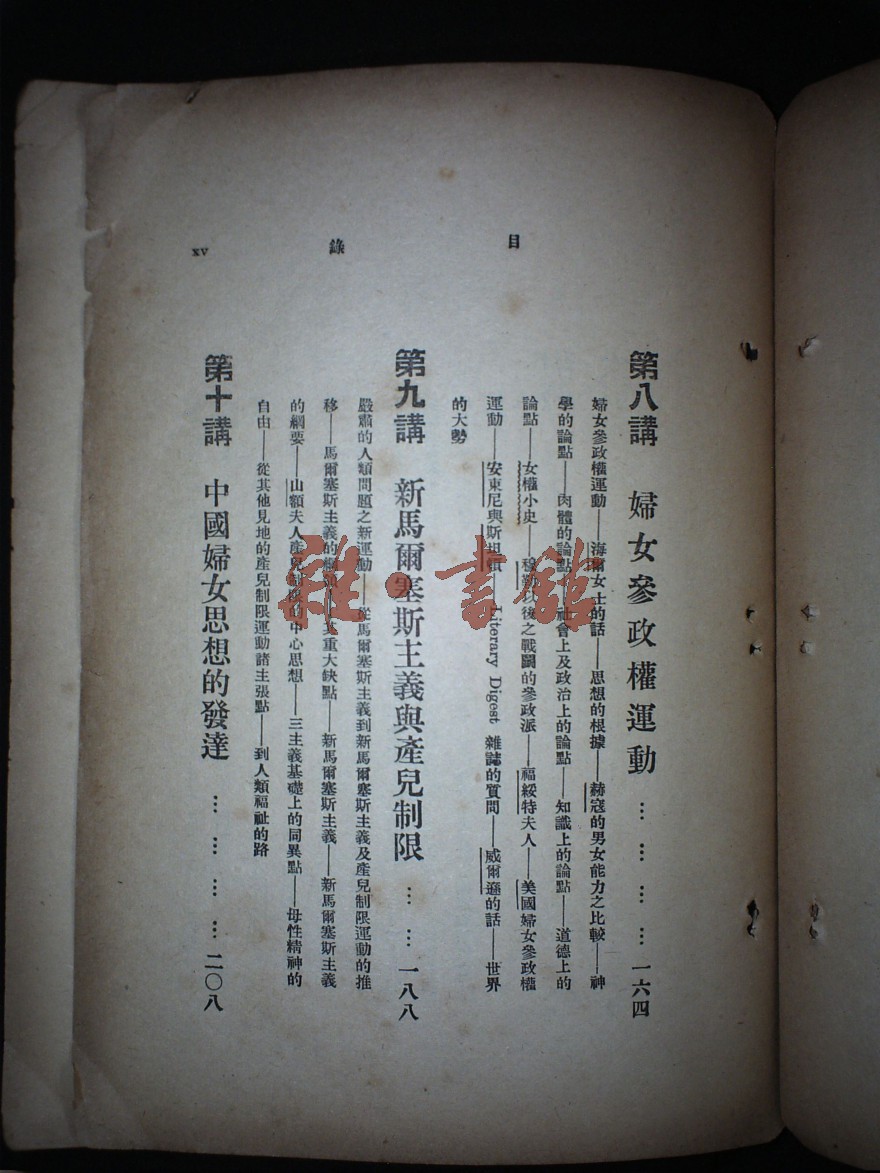 目錄
xv
第八講 婦女參政權運動 … … … … 一六四
婦女參政權運動——海爾女士的話——思想的根據——赫寇的男女能力之比較——神
學的論點——肉體的論點——社會上及政治上的論點——知識上的論點——道德上的
論點——女權小史——穆勒以後之戰鬭的參政派——福綏特夫人——美國婦女參政權
運動——安東尼與斯坦頓——Literary Digest 雜誌的質問——威爾遜的話——世界
的大勢
第九講 新馬爾塞斯主義與產兒制限 … … 一八八
嚴肅的人類問題之新運動——從馬爾塞斯主義到新馬爾塞斯主義及產兒制限運動的推
移——馬爾塞斯主義的 重大缺點——新馬爾塞斯主義——新馬爾塞斯主義
的綱要——山額夫人產兒制限的中心思想——三主義基礎上的同異點——母性精神的
自由——從其他見地的產兒制限運動諸主張點——到人類福祉的路
第十講 中國婦女思想的發達 … … … … 二〇八
雜·書館